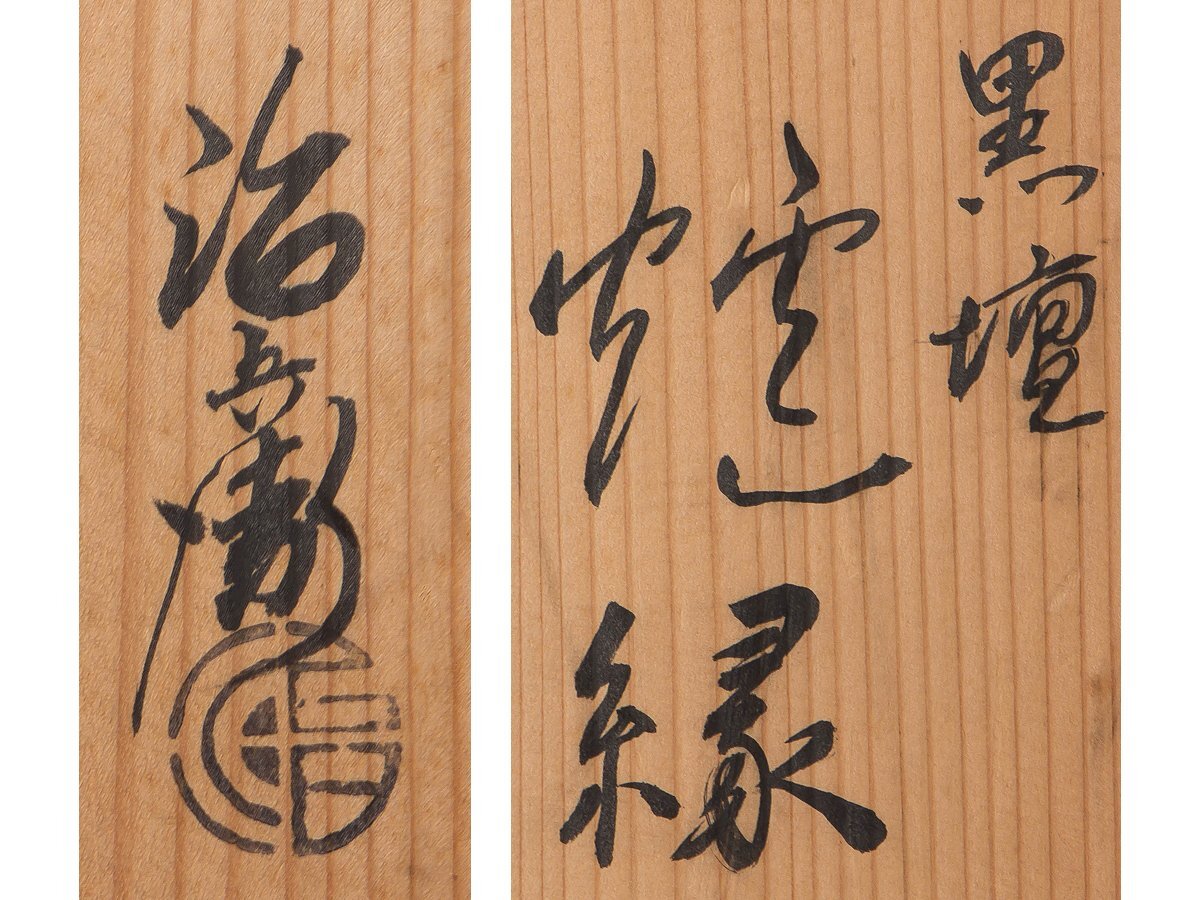 黒壇
爐縁
治兵衛